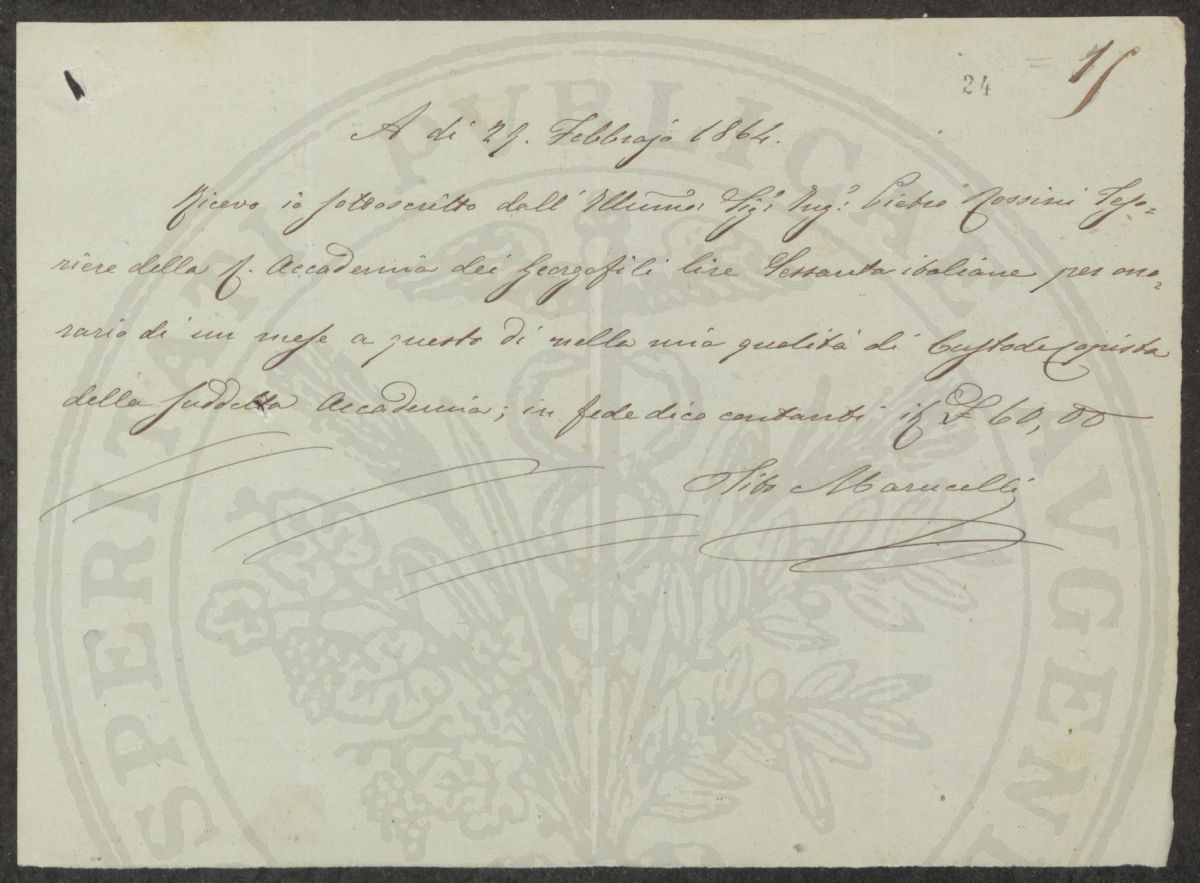 24
15
A dì 29. Febbrajo 1864.
Ricevo io sottoscritto dall' Illumo: Sigr: Ingr: Pietro Rossini Teso=
riere della R. Accademia dei Georgofili lire Sessanta italiane per ono=
rario di un mese a questo dì nella mia qualità di Custode Copista
della suddetta Accademia; in fede dico contanti £ 60,00
Tito Marucelli
PROSPERITATI PVBLICAE AVGENDAE